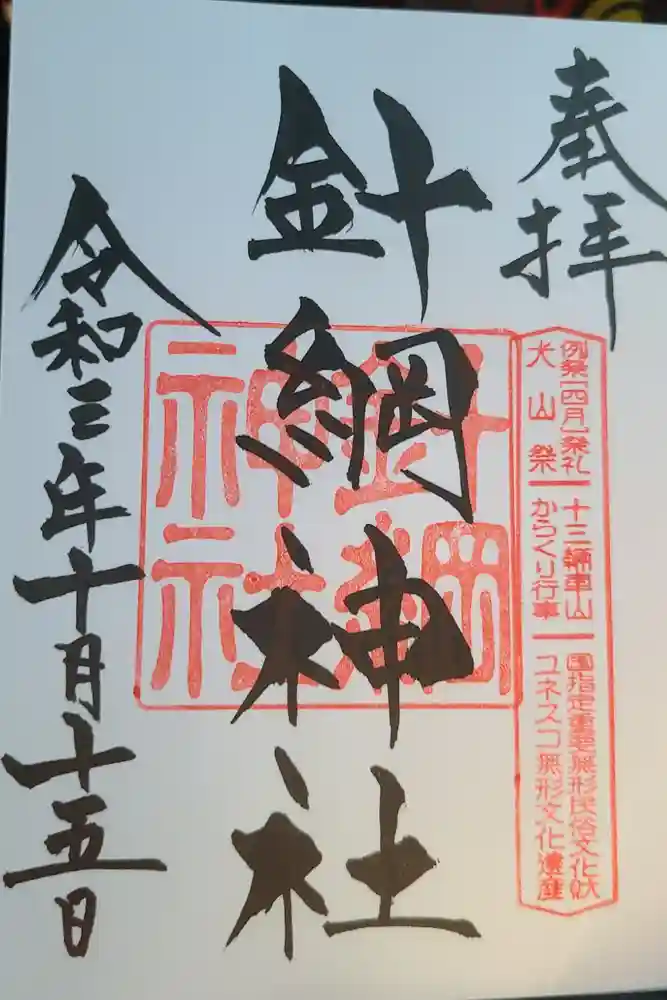 奉拝
例祭(四月)祭礼
犬山祭
十三輛車山
からくり行事
国指定重要無形民俗文化財
ユネスコ無形文化遺産
針綱神社
針綱
神社
令和三年十月十五日